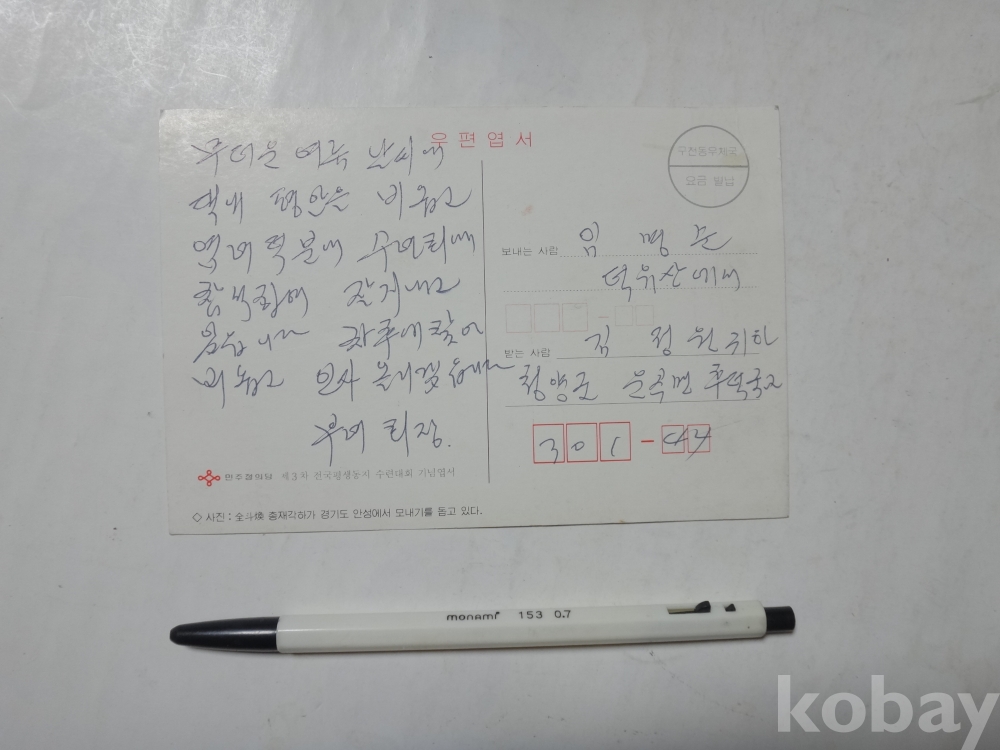 우편엽서
구천동우체국
요금 별납
무더운 여름 날씨에
댁내 평안을 비옵고
염려 덕분에 무면회에
참석하여 잘 지내고
있습니다 차후에 찾아
뵈옵고 인사 올리겠습니다
부여 회장.
민주정의당 제3차 전국평생동지 수련대회 기념엽서
◇ 사진 : 全斗煥 총재각하가 경기도 안성에서 모내기를 돕고 있다.
보내는 사람 임 명 문
덕유산에서
받는 사람 김 정 원 귀하
청양군 운곡면 후덕국교
301-44
monami 153 0.7
kobay